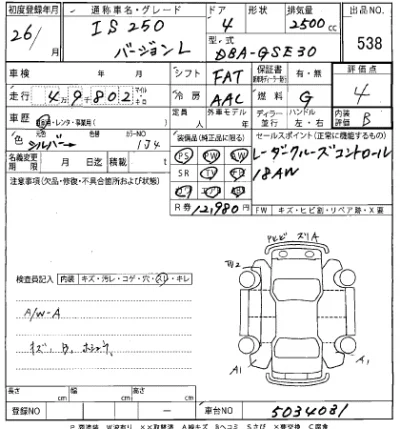 初度登録年月 通称車名・グレード ドア 形状 排気量 出品NO.
26/ 月 IS250 バージョンL 4 2500 cc 538
型・式 DBA-GSE30
車検 年 月 シフト FAT 保証書 有・無 評価点
走行 4万9千802 マイル・キロ 冷房 AAC 燃料 G 4
車歴 自家・レンタ・事業用( ) 定員 人 外車モデル 年 ディーラー 並行 ハンドル 左・右 内装評価 B
色 元色 シルバー 色替 カラーNO 1J4
装備品(純正品に限る) セールスポイント(正常に機能するもの)
名義変更期限 月 日迄 積載 t
PS PW SW
SR TV ナビ
革 エアB ABS
レーダークルーズコントロール
18AW
注意事項(欠品・修復・不具合箇所および状態)
R券 12,980 円 FW キズ・ヒビ割・リペア跡・X要
検査員記入 内装 キズ・汚レ・コゲ・穴・スレ・キレ
A/W-A
キズ、B、
A ヒビ スリA
A1 A1
長さ cm 幅 cm 高さ cm
登録NO - 車台NO 5034081
P 要塗装 W波有り XX取替済 A線キズ Bヘコミ Sさび X要交換 C腐食